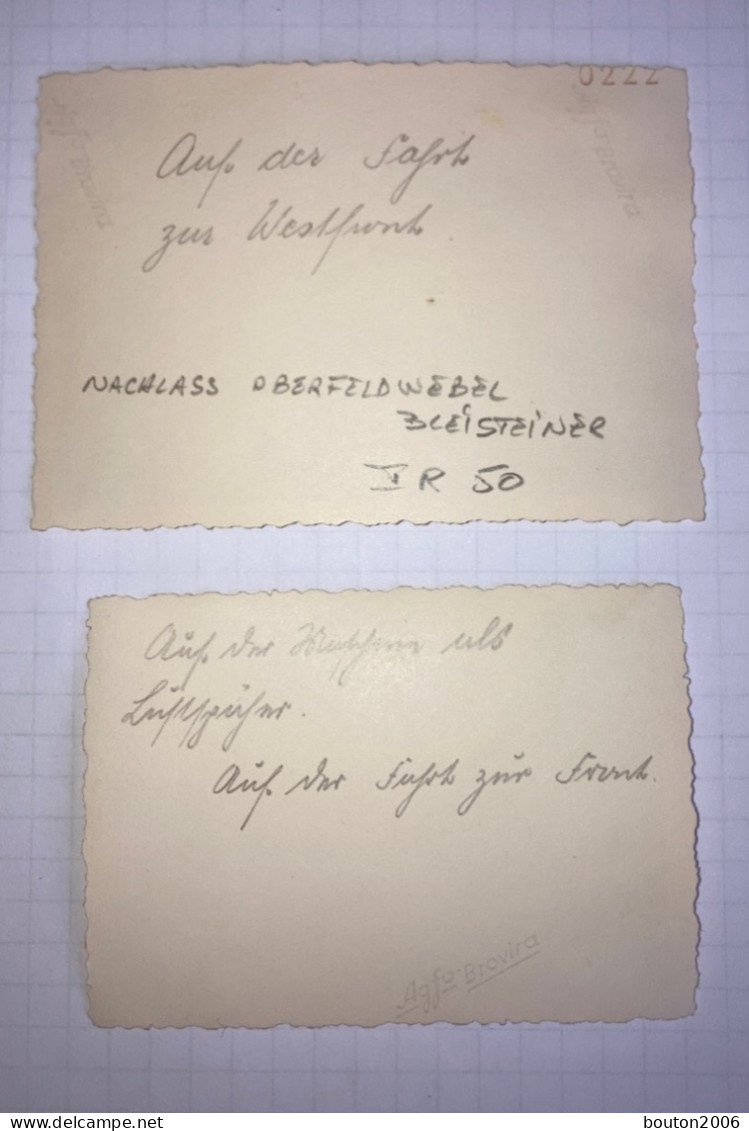 0222
Agfa-Brovira
Agfa-Brovira
Auf der Fahrt
zur Westfront.
NACHLASS OBERFELDWEBEL
BLEISTEINER
IR 50
Auf der Maschine als
Luftspäher.
Auf der Fahrt zur Front.
Agfa-Brovira
delcampe.net
bouton2006